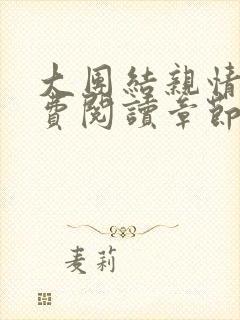 大团結親情
費閱讀章節
麦莉